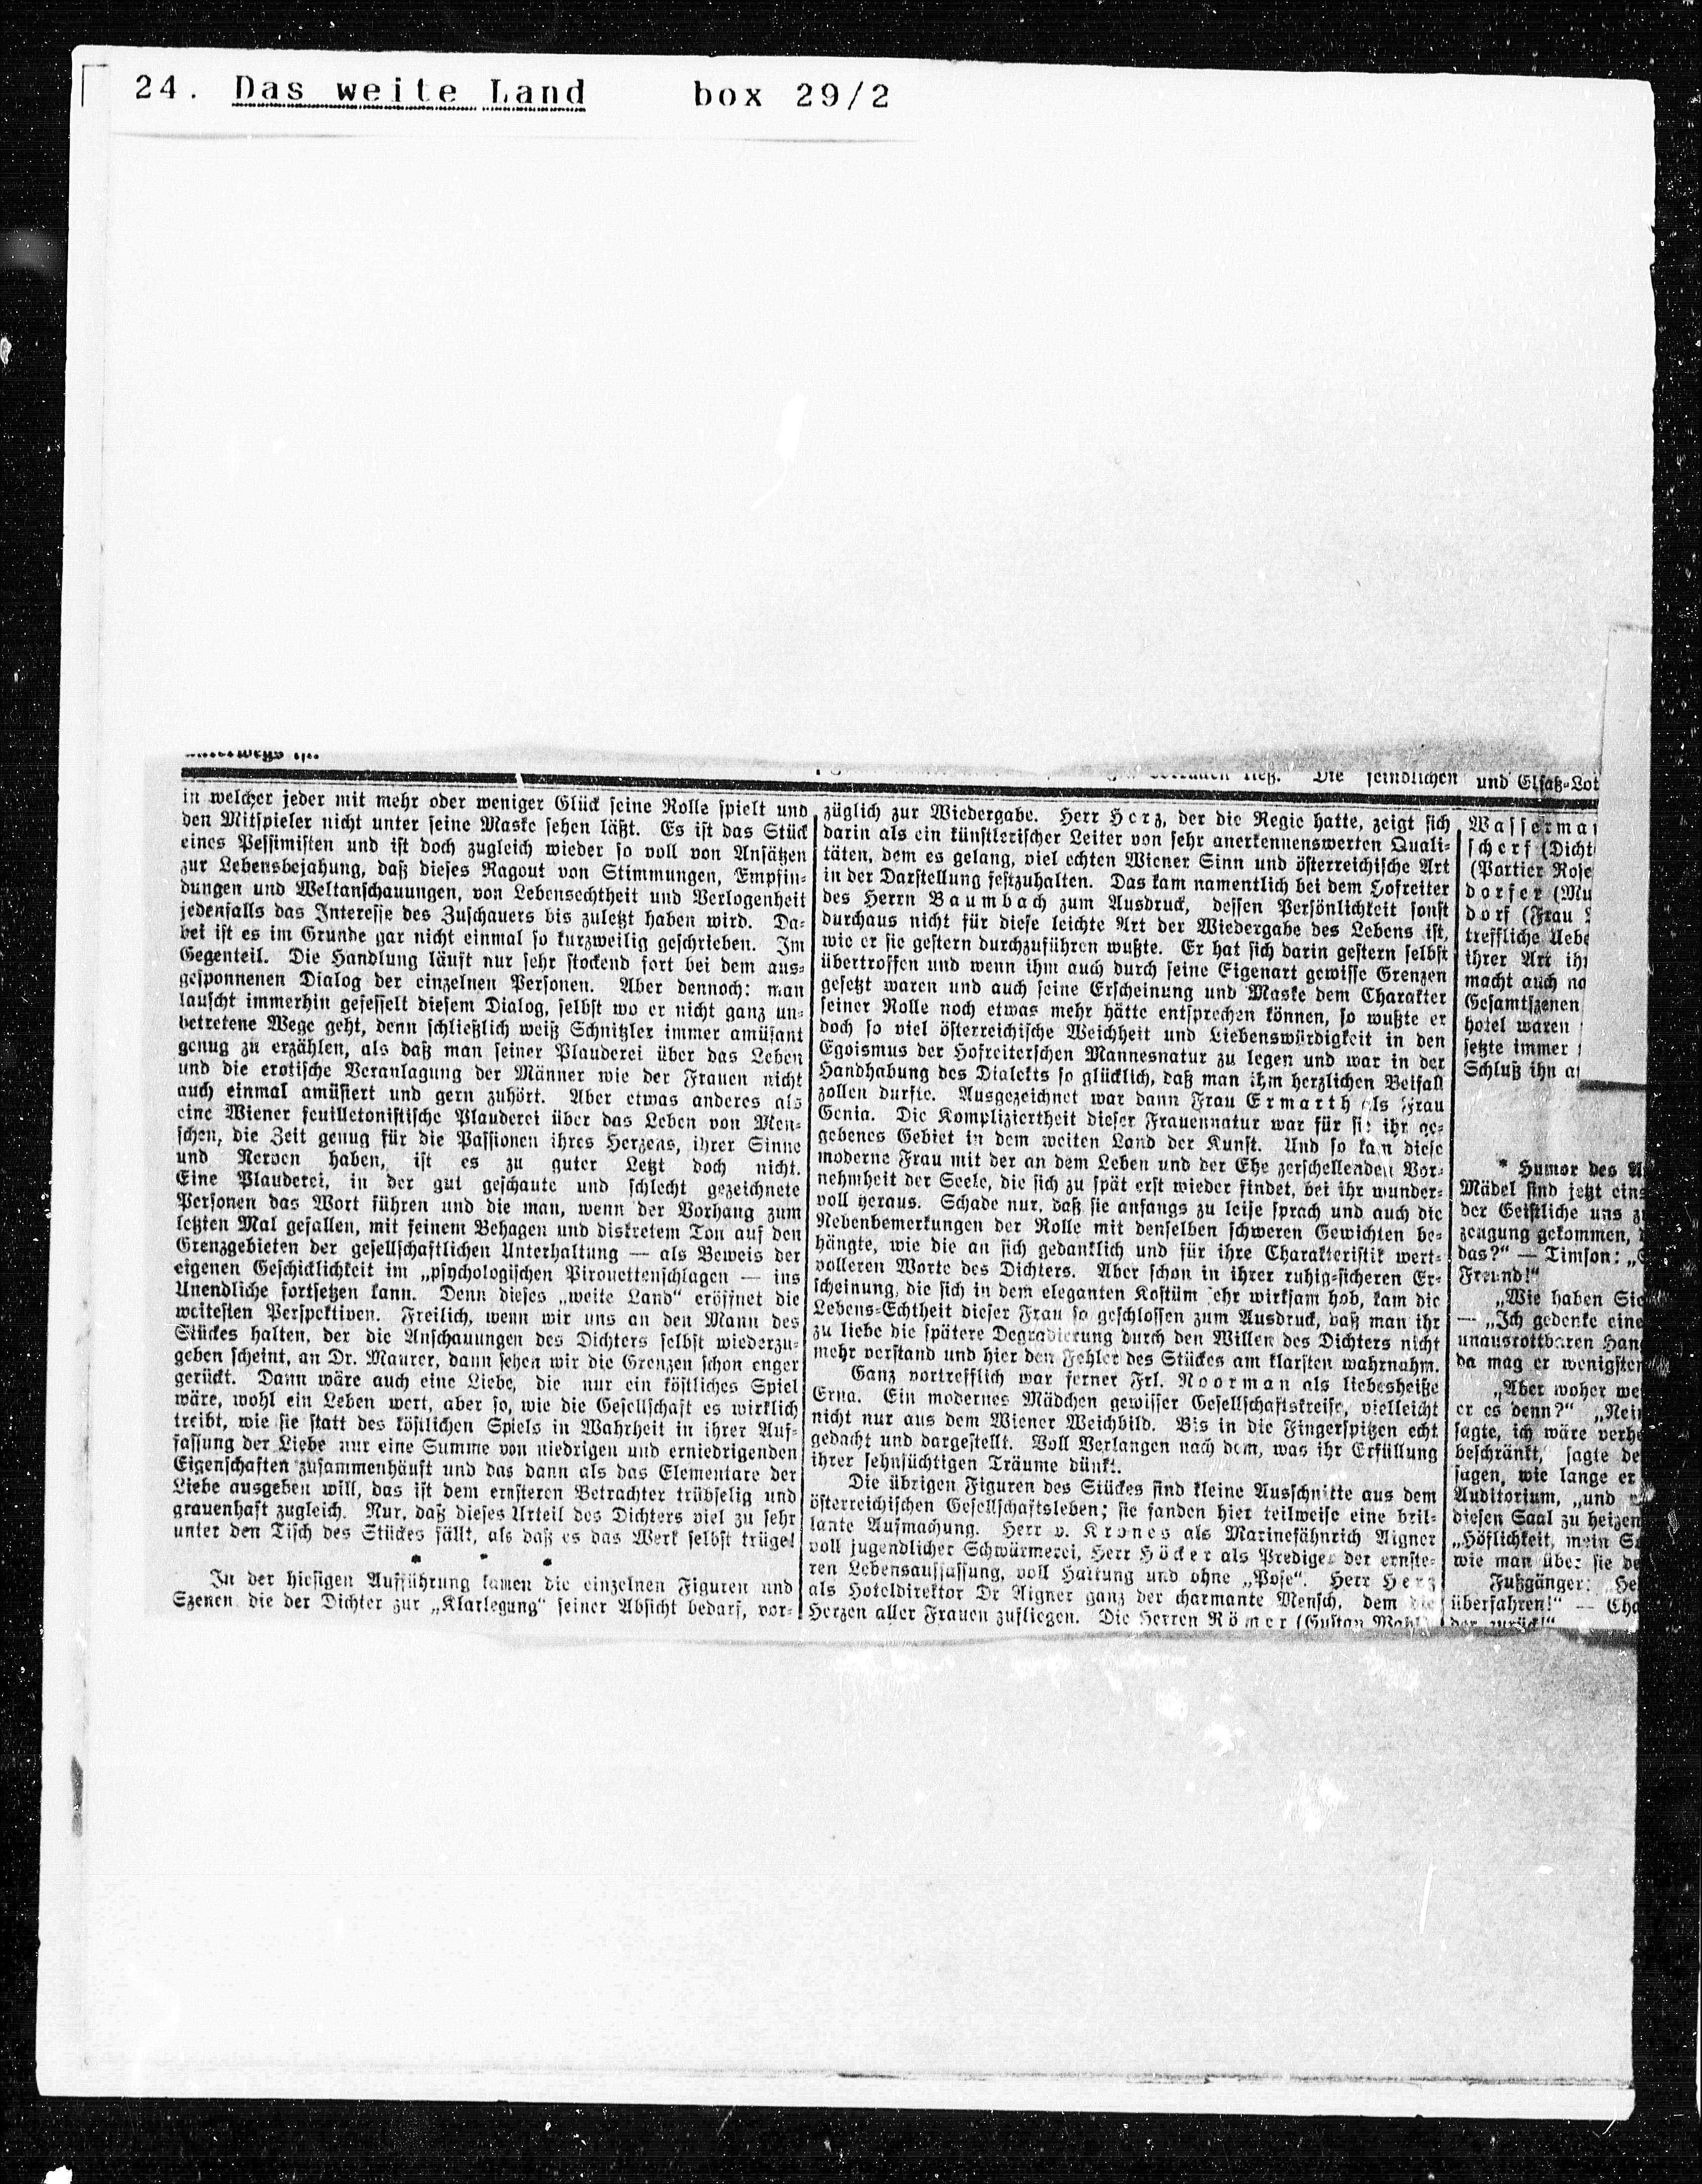 24. Das weite Land box 29/2
unterwegs ist.
in welcher jeder mit mehr oder weniger Glück seine Rolle spielt und
den Mitspieler nicht unter seine Maske sehen läßt. Es ist das Stück
eines Pessimisten und ist doch zugleich wieder so voll von Ansätzen
zur Lebensbejahung, daß dieses Ragout von Stimmungen, Empfin-
dungen und Weltanschauungen, von Lebensechtheit und Verlogenheit
jedenfalls das Interesse des Zuschauers bis zuletzt haben wird. Da-
bei ist es im Grunde gar nicht einmal so kurzweilig geschrieben. Im
Gegenteil. Die Handlung läuft nur sehr stockend fort bei dem aus-
gesponnenen Dialog der einzelnen Personen. Aber dennoch: man
lauscht immerhin gefesselt diesem Dialog, selbst wo er nicht ganz un-
betretene Wege geht, denn schließlich weiß Schnitzler immer amüsant
genug zu erzählen, als daß man seiner Plauderei über das Leben
und die erotische Veranlagung der Männer wie der Frauen nicht
auch einmal amüsiert und gern zuhört. Aber etwas anderes als
eine Wiener feuilletonistische Plauderei über das Leben von Men-
schen, die Zeit genug für die Passionen ihres Herzens, ihrer Sinne
und Nerven haben, ist es zu guter Letzt doch nicht.
Eine Plauderei, in der gut geschaute und schlecht gezeichnete
Personen das Wort führen und die man, wenn der Vorhang zum
letzten Mal gefallen, mit feinem Behagen und diskretem Ton auf den
Grenzgebieten der gesellschaftlichen Unterhaltung — als Beweis der
eigenen Geschicklichkeit im „psychologischen Pirouettenschlagen — ins
Unendliche fortsetzen kann. Denn dieses „weite Land“ eröffnet die
weitesten Perspektiven. Freilich, wenn wir uns an den Mann des
Stückes halten, der die Anschauungen des Dichters selbst wiederzu-
geben scheint, an Dr. Maurer, dann sehen wir die Grenzen schon enger
gerückt. Dann wäre auch eine Liebe, die nur ein köstliches Spiel
wäre, wohl ein Leben wert, aber so, wie die Gesellschaft es wirklich
treibt, wie sie statt des köstlichen Spiels in Wahrheit in ihrer Auf-
fassung der Liebe nur eine Summe von niedrigen und erniedrigenden
Eigenschaften zusammenhäuft und das dann als das Elementare der
Liebe ausgeben will, das ist dem ernsteren Betrachter trübselig und
grauenhaft zugleich. Nur, daß dieses Urteil des Dichters viel zu sehr
unter den Tisch des Stückes fällt, als daß es das Werk selbst trüge!
* * *
In der hiesigen Aufführung kamen die einzelnen Figuren und
Szenen, die der Dichter zur „Klarlegung“ seiner Absicht bedarf, vor-
ließ. Die feindlichen
züglich zur Wiedergabe. Herr Herz, der die Regie hatte, zeigt sich
darin als ein künstlerischer Leiter von sehr anerkennenswerten Quali-
täten, dem es gelang, viel echten Wiener Sinn und österreichische Art
in der Darstellung festzuhalten. Das kam namentlich bei dem Hofreiter
des Herrn Baumbach zum Ausdruck, dessen Persönlichkeit sonst
durchaus nicht für diese leichte Art der Wiedergabe des Lebens ist,
wie er sie gestern durchzuführen wußte. Er hat sich darin gestern selbst
übertroffen und wenn ihm auch durch seine Eigenart gewisse Grenzen
gesetzt waren und auch seine Erscheinung und Maske dem Charakter
seiner Rolle noch etwas mehr hätte entsprechen können, so wußte er
doch so viel österreichische Weichheit und Liebenswürdigkeit in den
Egoismus der Hofreiterschen Mannesnatur zu legen und war in der
Handhabung des Dialekts so glücklich, daß man ihm herzlichen Beifall
zollen durfte. Ausgezeichnet war dann Frau Ermarth als Frau
Genia. Die Kompliziertheit dieser Frauennatur war für sie ihr ge-
gebenes Gebiet in dem weiten Land der Kunst. Und so kam diese
moderne Frau mit der an dem Leben und der Ehe zerschellenden Vor-
nehmheit der Seele, die sich zu spät erst wieder findet, bei ihr wunder-
voll heraus. Schade nur, daß sie anfangs zu leise sprach und auch die
Nebenbemerkungen der Rolle mit denselben schweren Gewichten be-
hängte, wie die an sich gedanklich und für ihre Charakteristik wert-
volleren Worte des Dichters. Aber schon in ihrer ruhig-sicheren Er-
scheinung, die sich in dem eleganten Kostüm sehr wirksam hob, kam die
Lebens-Echtheit dieser Frau so geschlossen zum Ausdruck, daß man ihr
zu liebe die spätere Degradierung durch den Willen des Dichters nicht
mehr verstand und hier den Fehler des Stückes am klarsten wahrnahm.
Ganz vortrefflich war ferner Frl. Noorman als liebesheiße
Erna. Ein modernes Mädchen gewisser Gesellschaftskreise, vielleicht
nicht nur aus dem Wiener Weichbild. Bis in die Fingerspitzen echt
gedacht und dargestellt. Voll Verlangen nach dem, was ihr Erfüllung
ihrer sehnsüchtigen Träume dünkt.
Die übrigen Figuren des Stückes sind kleine Ausschnitte aus dem
österreichischen Gesellschaftsleben; sie fanden hier teilweise eine bril-
lante Aufmachung. Herr v. Krones als Marinefähnrich Aigner
voll jugendlicher Schwärmerei, Herr Höcker als Prediger der ernste-
ren Lebensauffassung, voll Haltung und ohne „Pose“. Herr Herz
als Hoteldirektor Dr Aigner ganz der charmante Mensch, dem die
Herzen aller Frauen zufliegen. Die Herren Römer (Gustav Wahl)
und Elsaß-Lot
Wasserma
scherf (Dicht
(Portier Rose
dorfer (Mu
dorf (Frau
treffliche Uebe
ihrer Art ih
macht auch na
Gesamtszenen
hotel waren
setzte immer
Schluß ihn a
* Humor des A
Mädel sind jetzt eins
der Geistliche uns z
zeugung gekommen,
das?“ — Timson: „
Freund!“
„Wie haben Sie
— „Ich gedenke eine
unausrottbaren Hang
da mag er wenigsten
„Aber woher we
er es denn?“ „Nein
sagte, ich wäre verhe
beschränkt, sagte de
sagen, wie lange er
Auditorium, „und
diesen Saal zu heizen
„Höflichkeit, mein S
wie man über sie de
Fußgänger: „He
überfahren!“ — Cha
der zurück!“